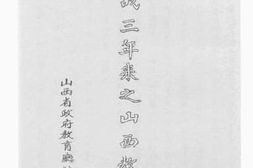 三年來之山西教
山西省政府教育廳